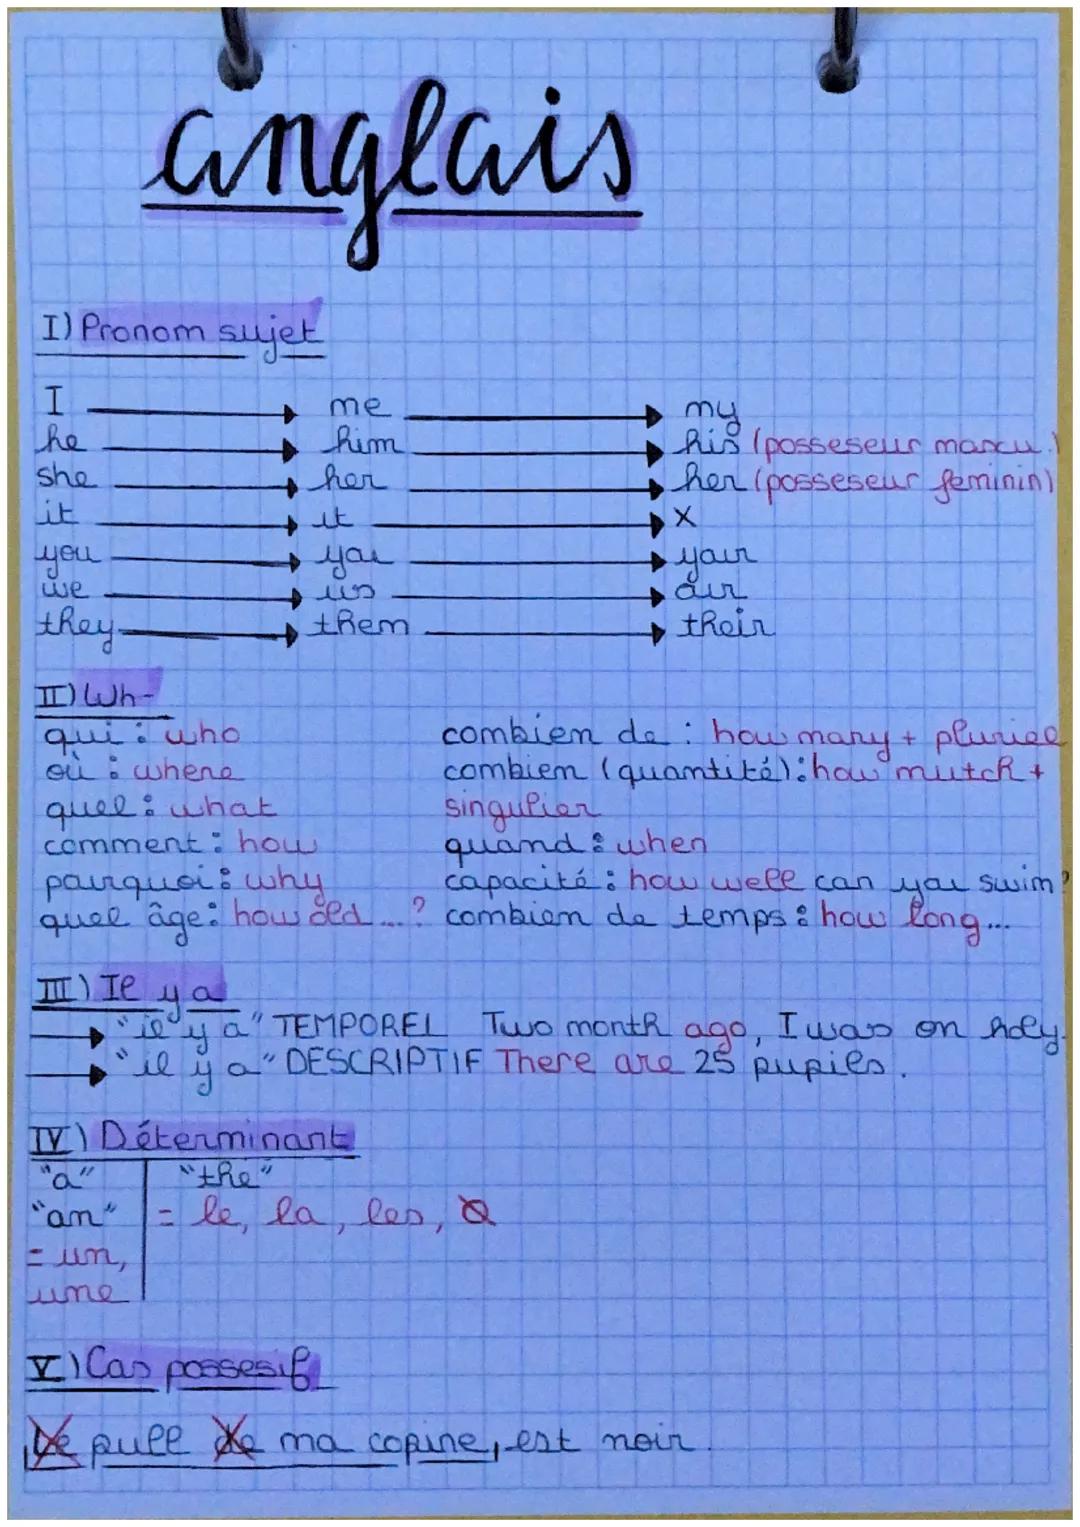 anglais
I) Pronom sujet
I → me → my
he → him → his (posseseur mascu.)
she → her → her (posseseur feminin)
it → it → X
you → you → your
we → us → our
they → them → their
II) Wh-
qui : who
où : where
quel : what
comment : how
pourquoi : why
quel âge : how old ... ?
combien de : how many + pluriel
combien (quantité) : how mutch +
singulier
quand : when
capacité : how well can you swim?
combien de temps : how long...
III) Il y a
→ "il y a" TEMPOREL Two month ago, I was on holy.
→ "il y a" DESCRIPTIF There are 25 pupils.
IV) Déterminant
"a" "the"
"an" = le, la, les, Ø
= un,
une
V) Cas possesif
Le pull de ma copine, est noir.